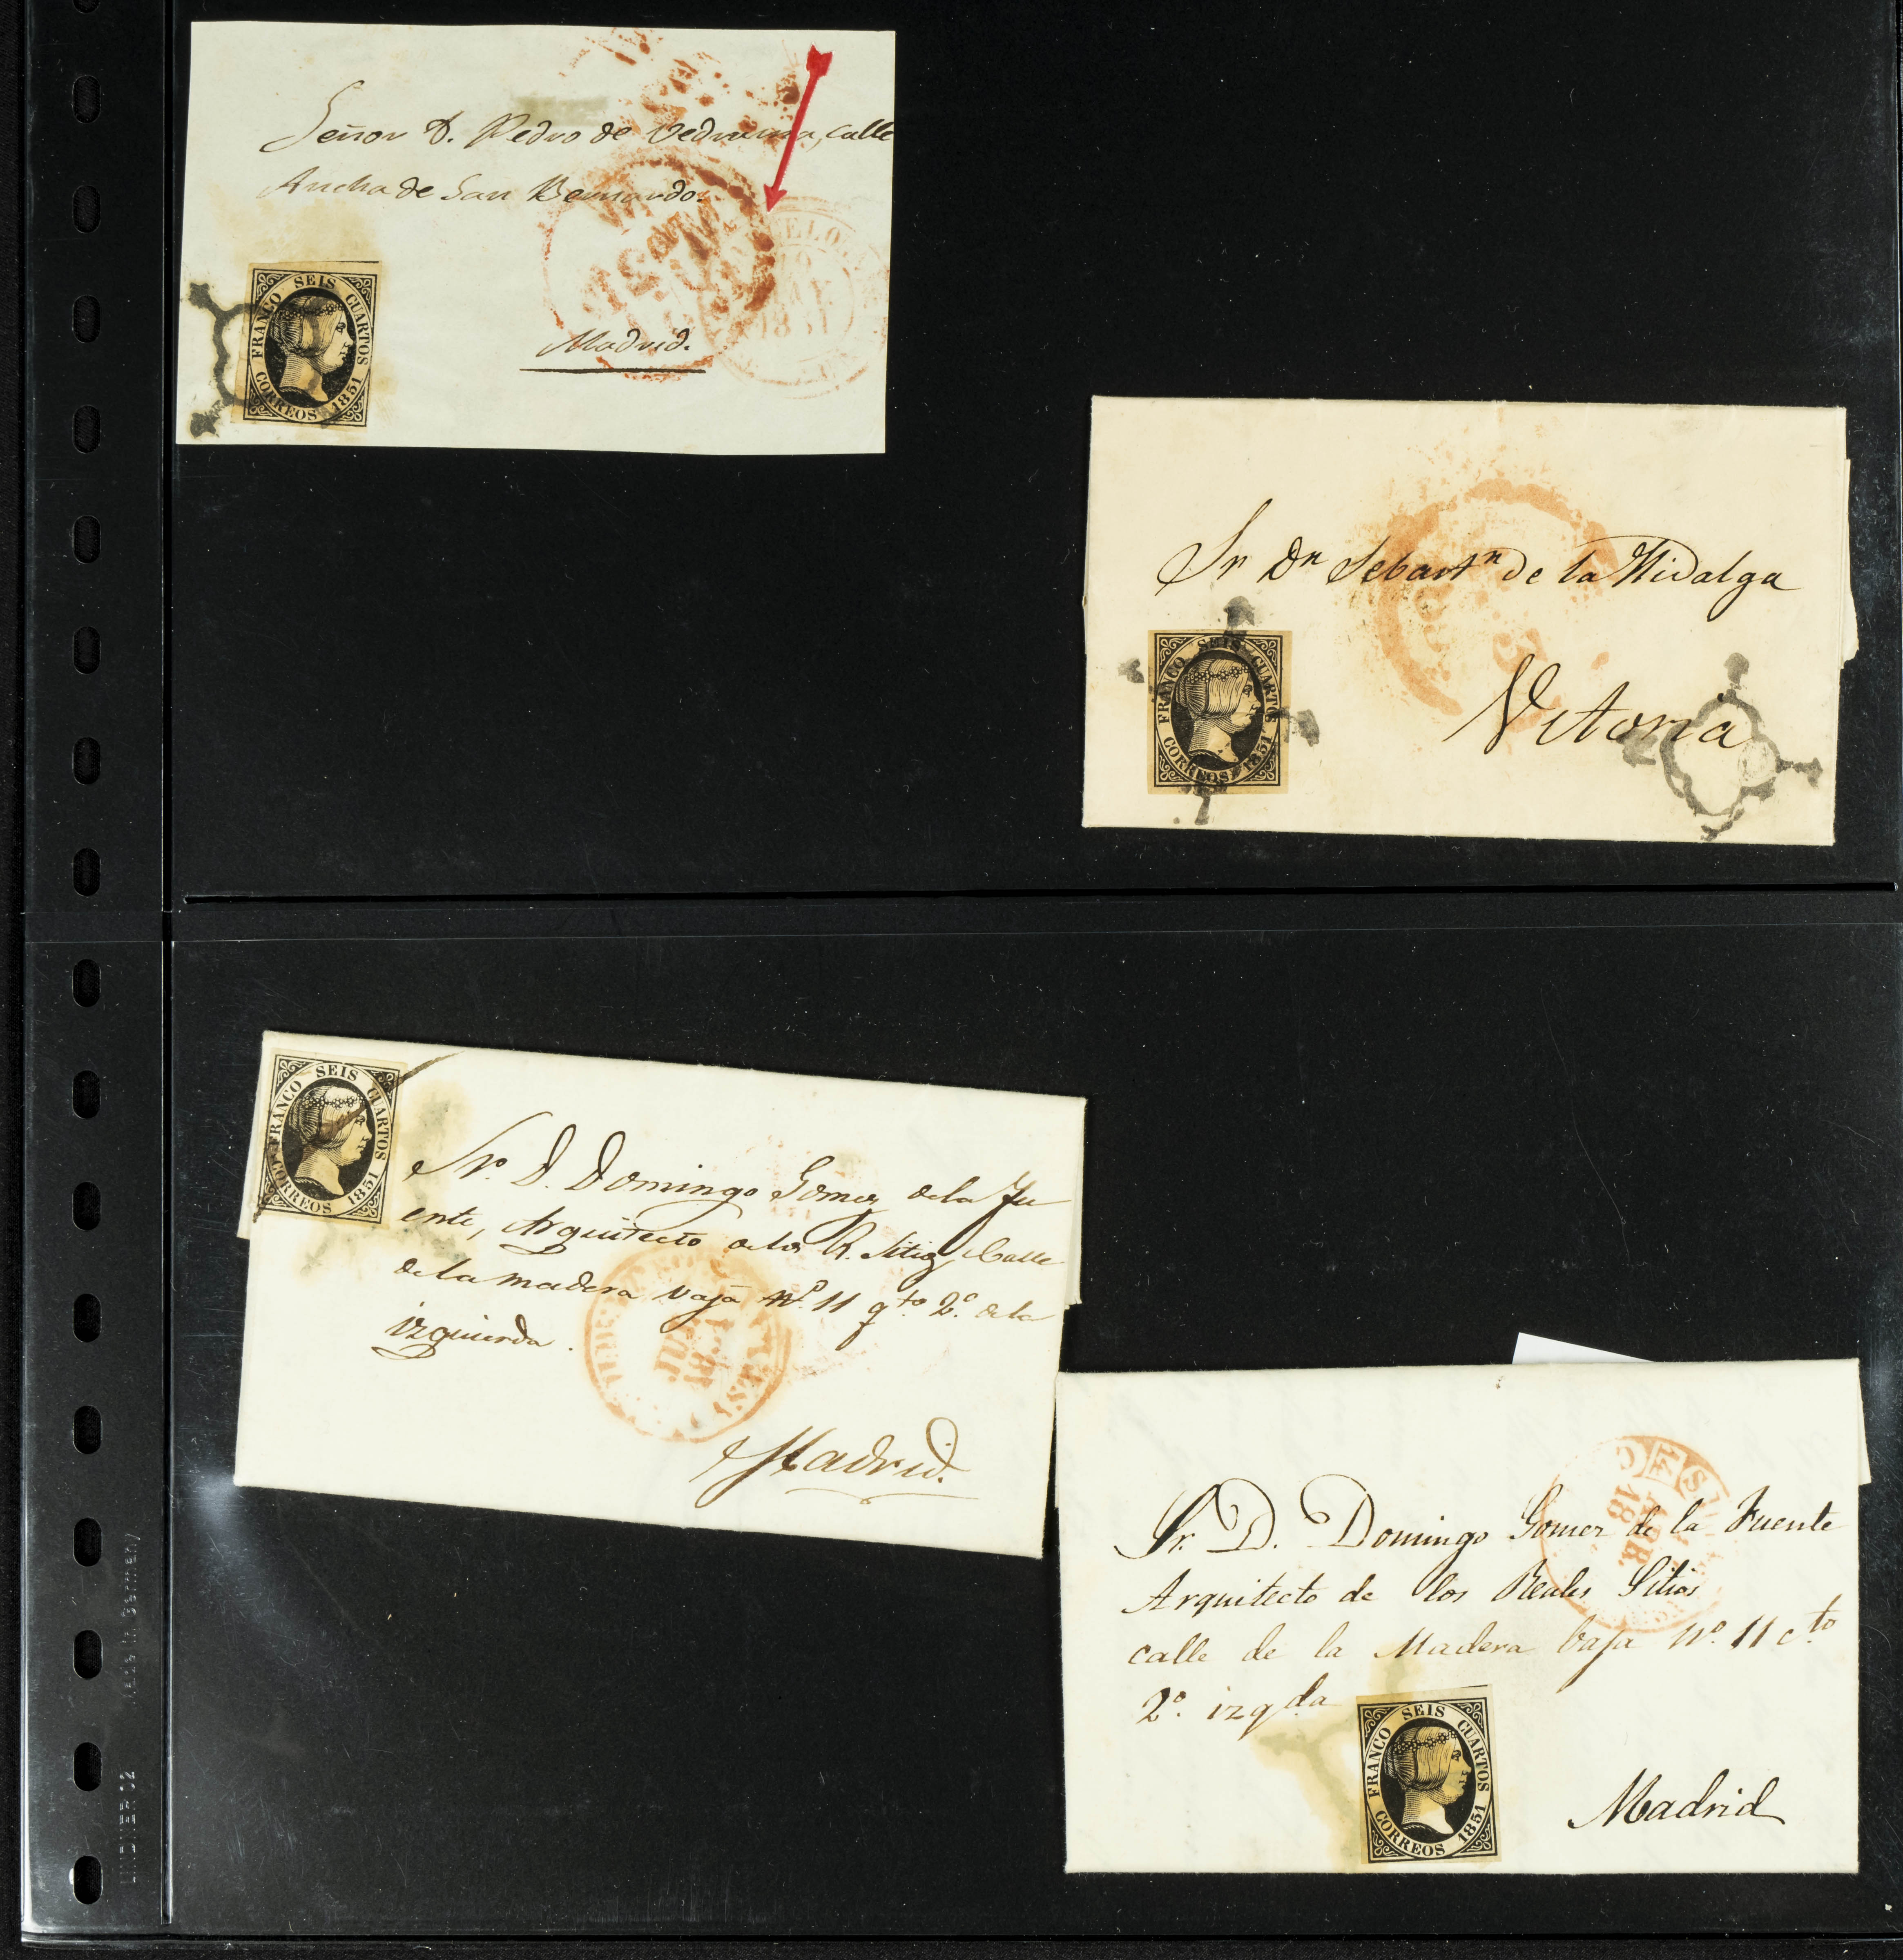 Señor D. Pedro de Vedruna, calle
Ancha de San Bernardo.
Madrid.
FRANCO SEIS CUARTOS
CORREOS 1851
1851
Sr Dn Sebastn de la Hidalga
Vitoria
FRANCO SEIS CUARTOS
CORREOS 1851
FRANCO SEIS CUARTOS
CORREOS 1851
Sr. D. Domingo Gomez de la Fu
ente, Arquitecto de los R. Sitios, Calle
de la madera vaja Nº. 11 qto. 2º. de la
izquierda.
Madrid.
JUL
Sr. D. Domingo Gomez de la Fuente
Arquitecto de los Reales Sitios
calle de la Madera baja Nº. 11 cto
2º. izqda
Madrid
FRANCO SEIS CUARTOS
CORREOS 1851
Made in Germany
LINDNER 02